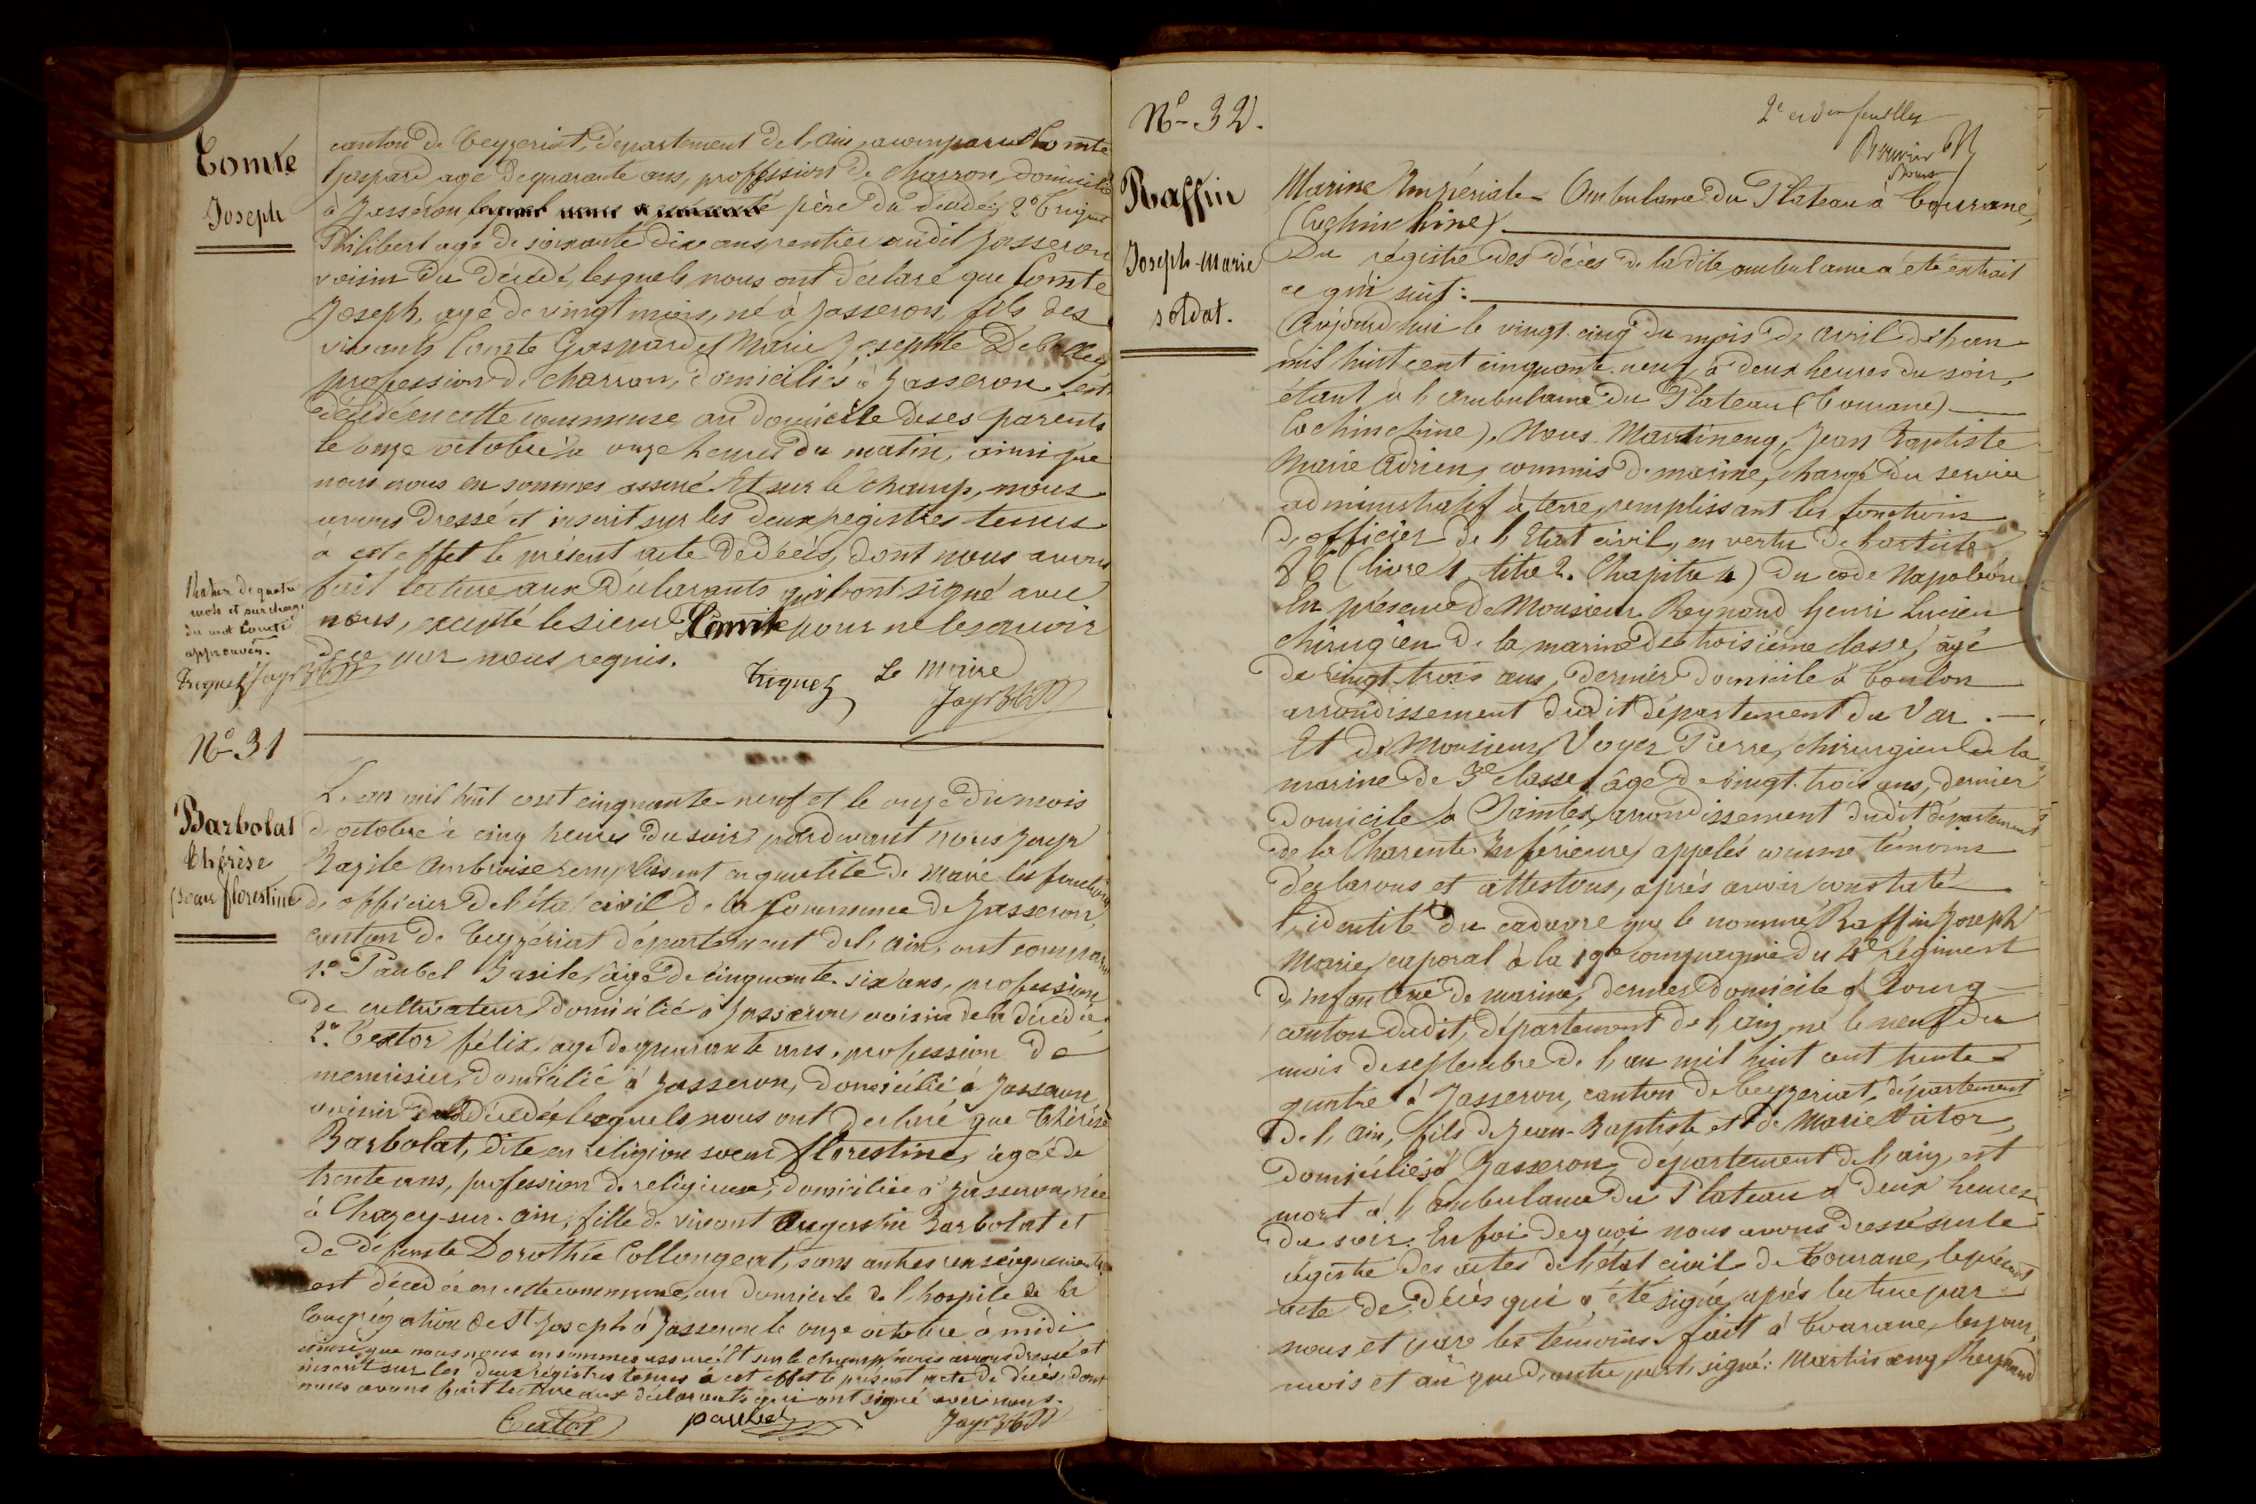 Comte
Joseph
canton de Ceyzeriat, département de l'ain, a comparu Comte
Gaspard agé de quarante ans, proffession de charron, domicilié
à Jasseron, père du décédé, 2° Triquet
Philibert agé de soixante dix ans rentier audit Jasseron
voisin du décédé, lesquels nous ont déclaré que Comte
Joseph, agé de vingt mois, né à Jasseron, fils des
vivants Comte Gaspard et Marie Josephte
profession de charron, domiciliés à Jasseron, est
décédé en cette commune au domicile de ses parents
le onze octobre à onze heures du matin, ainsi que
nous nous en sommes assuré. Et sur le champ, nous
avons dressé et inscrit sur les deux registres tenus
à cet effet le présent acte de décès, dont nous avons
fait lecture aux déclarants qui ont signé avec
nous, excepté le sieur Comte pour ne le savoir
de ce par nous requis.
Rature de quatre
mots et surcharge
du mot Comte
approuvés.
Triquet Jayr
Triquet Le Maire
Jayr
N° 31
Barbolat
Thérèse
(soeur florestine
L'an mil huit cent cinquante-neuf et le onze du mois
d'octobre à cinq heures du soir, pardevant nous Jayr
Bazile Ambroise remplissant en qualité de Maire les fonctions
d'officier de l'état civil de la Commune de Jasseron,
canton de Ceyzériat département de l'ain, ont comparu
1° Paubel Basile, âgé de cinquante-six ans, profession
de cultivateur, domicilié à Jasseron, voisin de la décédée
2° Textor félix, agé de quarante ans, profession de
menuisier, domicilié à Jasseron, domicilié à Jasseron,
voisin de la décédée lesquels nous ont declaré que Thérèse
Barbolat, dite en réligion soeur florestine, agée de
trente ans, profession de religieuse, domiciliée à Jasseron, née
à Chazey-sur-ain, fille de vivant Augustin Barbolat et
de défunte Dorothée Collongeat, sans autres renseignements
est décédée en cette commune, au domicile de l'hospice de la
Congrégation de St Joseph à Jasseron le onze octobre à midi
ainsi que nous nous en sommes assuré. Et sur le champ nous avons dressé et
inscrit sur les deux régistres tenus à cet effet le présent acte de décès, dont
nous avons fait lecture aux déclarants qui ont signé avec nous.
Textor paubel Jayr
N° 32.
2e et der feuillet
Raffin
Joseph-Marie
soldat.
Marine Impériale - Ambulance du Plateau à Tourane,
(Cochinchine).
Du régistre des décès de la dite ambulance a été extrait
ce qui suit:
Aujourd'hui le vingt-cinq du mois de avril de l'an
mil huit cent cinquante-neuf, à deux heures du soir,
étant à l'ambulance du Plateau (Tourane)
Cochinchine). Nous Martineng, Jean Baptiste
Marie Adrien, commis de marine, chargé du service
administratif à terre, remplissant les fonctions
d'officier de l'Etat civil, en vertu de l'article
86 (livre 1, titre 2. Chapitre 4) du code Napoléon
En présence de Monsieur Reynaud Henri Lucien
chirugien de la marine de troisième classe, âgé
de vingt-trois ans, dernier domicile à Toulon
arrondissement dudit département du Var.
Et de Monsieur Voyer Pierre, chirurgien de la
marine de 3e classe, âgé de vingt-trois ans, dernier
domicile à Saintes, arrondissement dudit département
de la Charente Inférieure, appelés comme témoins
déclarons et attestons, après avoir constaté
l'identité du cadavre que le nommé Raffin Joseph
Marie, caporal à la 19e compagnie du 4e régiment
d'infanterie de marine, dernier domicile à Bourg
canton dudit, département de l'ain, né le neuf du
mois de septembre de l'an mil huit cent trente
quatre à Jasseron, canton de Ceyzeriat, département
de l'ain, fils de Jean-Baptiste et de Marie Victor,
domiciliés à Jasseron, département de l'ain, est
mort à l'ambulance du Plateau à deux heures
du soir. En foi de quoi nous avons dressé sur le
régistre des actes de l'état civil de Tourane, le présent
acte de décès qui a été signé, après lecture par
nous et par les témoins. fait à Tourane, les jour,
mois et an que d'autre part, signé: Martineng, Reynaud